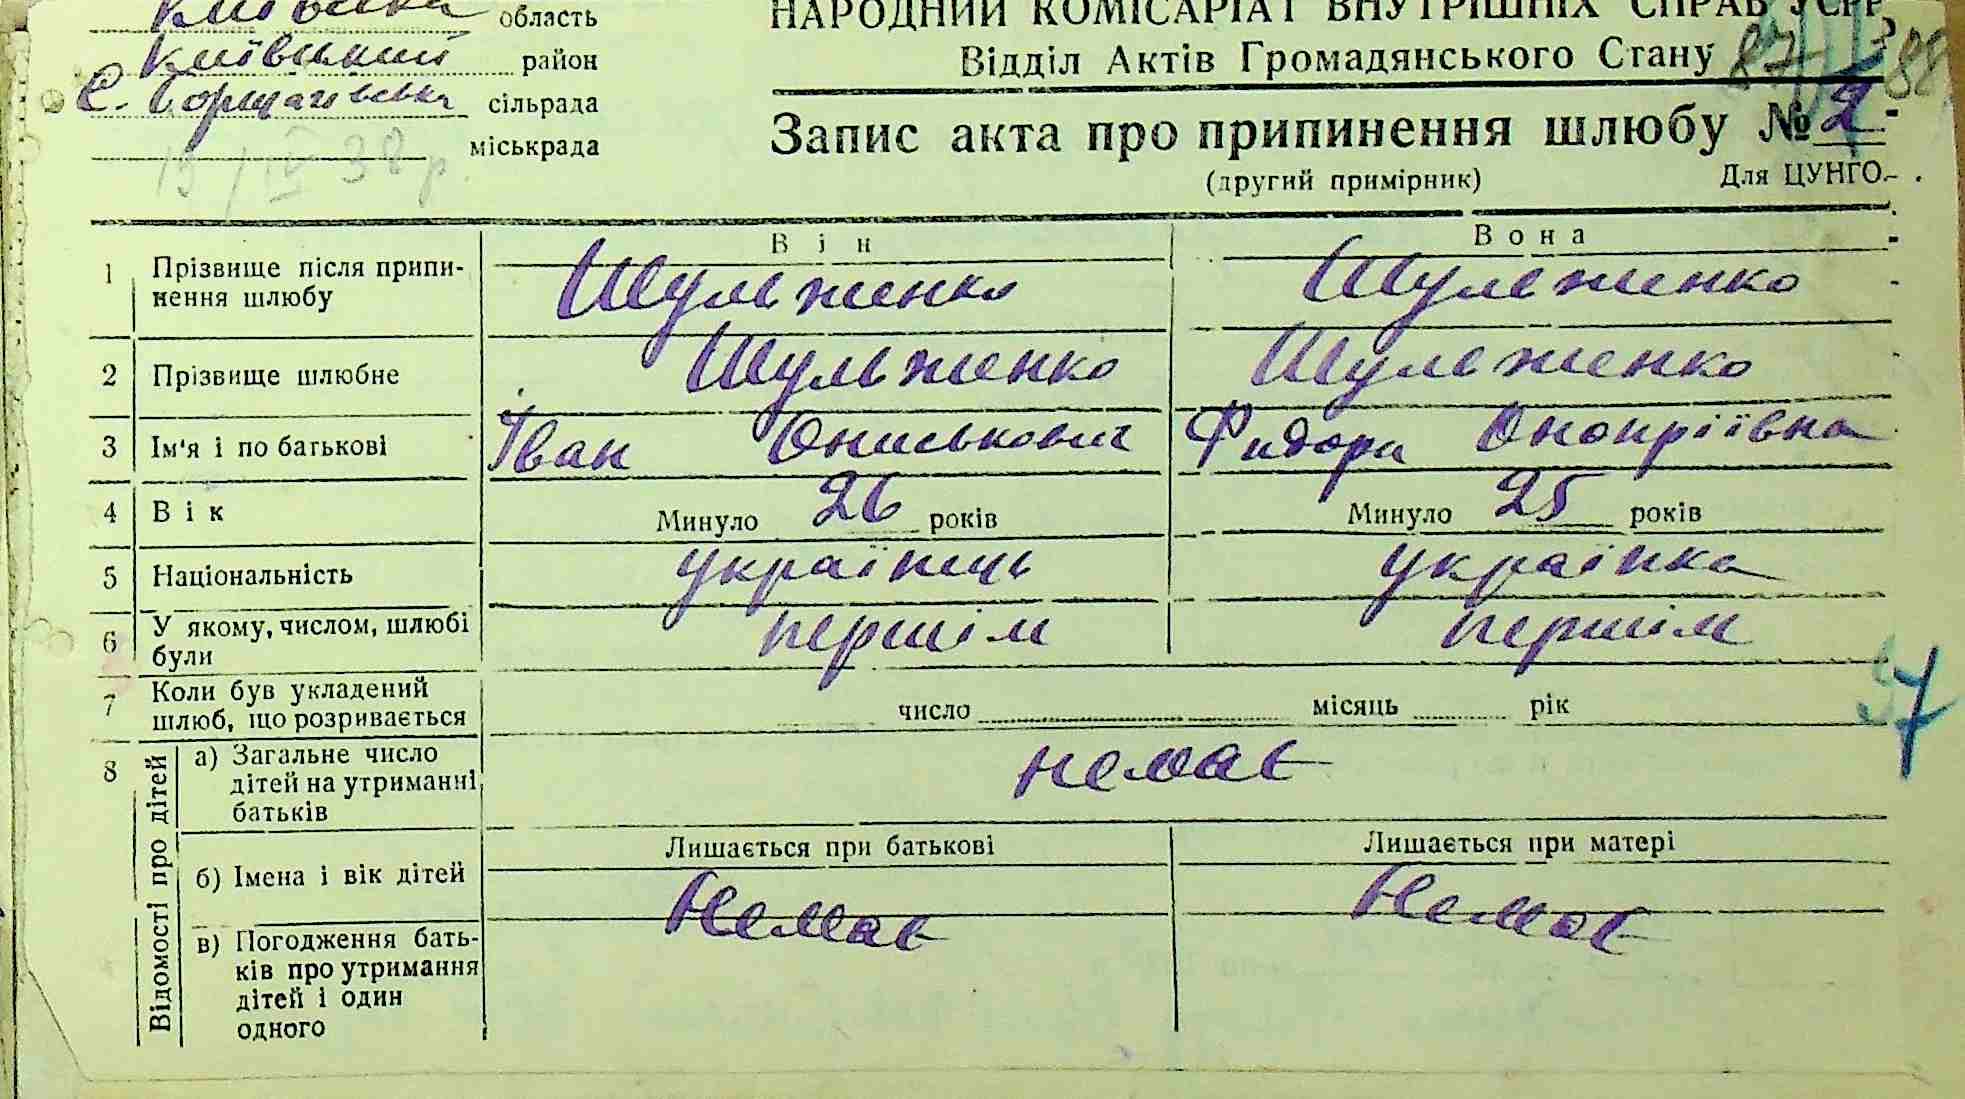 Київська область
Київський район
С. Борщагівська сільрада
міськрада
15/IV 38 р.
НАРОДНИЙ КОМІСАРІАТ ВНУТРІШНІХ СПРАВ УСРР
Відділ Актів Громадянського Стану
Запис акта про припинення шлюбу № 2
(другий примірник) Для ЦУНГО
Він Вона
1 Прізвище після припи-
нення шлюбу Шульженко Шульженко
2 Прізвище шлюбне Шульженко Шульженко
3 Ім'я і по батькові Іван Ониськович Фидора Онопріївна
4 Вік Минуло 26 років Минуло 25 років
5 Національність українець українка
6 У якому, числом, шлюбі
були першім першім
7 Коли був укладений
шлюб, що розривається число місяць рік
8 Відомості про дітей
а) Загальне число
дітей на утриманні
батьків немає
Лишається при батькові Лишається при матері
б) Імена і вік дітей Немає Немає
в) Погодження бать-
ків про утримання
дітей і один
одного